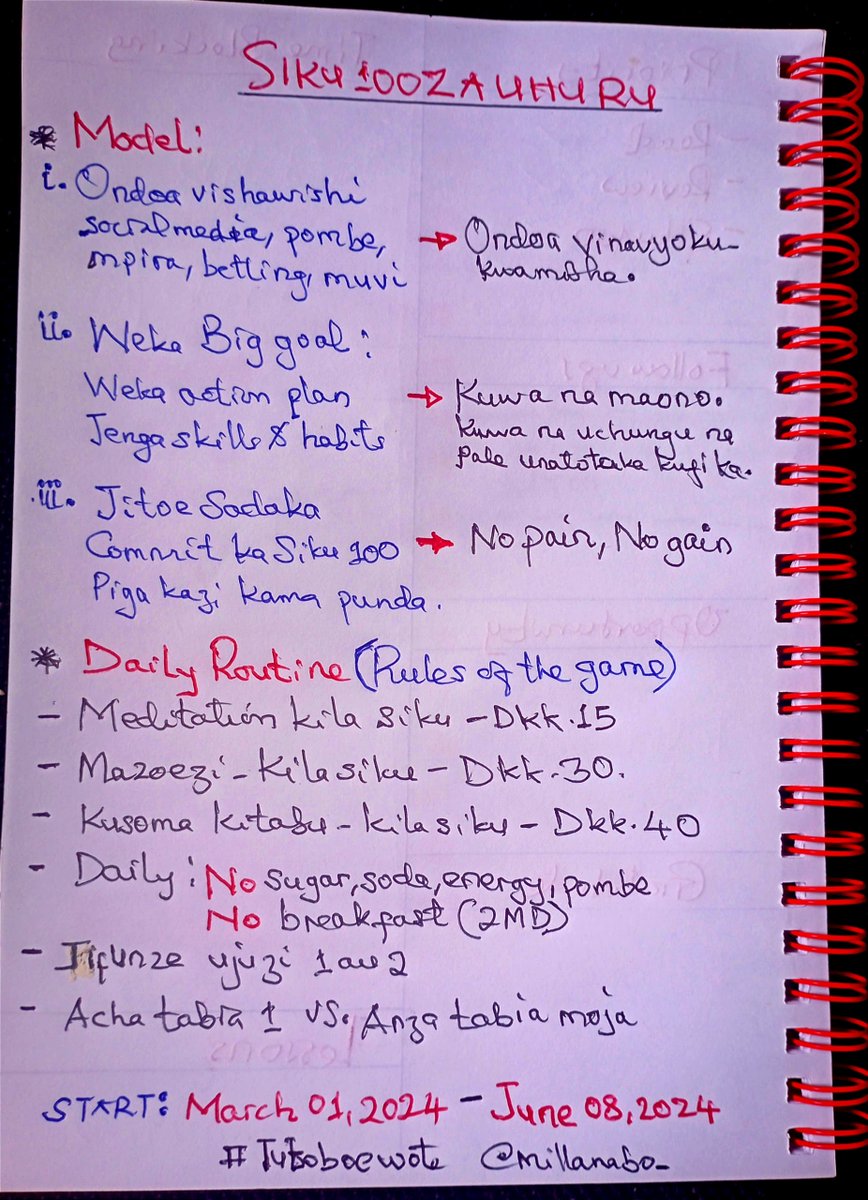 SIKU 100 ZA UHURU
* Model:
i. Ondoa vishawishi
social media, pombe,
mpira, betting, muvi
→ Ondoa vinavyoku-
kwamisha.
ii. Weka Big goal:
Weka action plan
Jenga skills & habits
→ Kuwa na maono.
Kuwa na uchungu na
pale unatotaka kufika.
iii. Jitoe Sadaka
Commit ka Siku 100
Piga kazi kama punda.
→ No pain, No gain
* Daily Routine (Rules of the game)
- Meditation kila siku - Dkk.15
- Mazoezi - Kila siku - Dkk.30.
- Kusoma kitabu - kila siku - Dkk.40
- Daily: No sugar, soda, energy, pombe
No breakfast (2MD)
- Jifunze ujuzi 1 au 2
- Acha tabia 1 vs. Anza tabia moja
START: March 01, 2024 - June 08, 2024
#Tutoboewote @millanabo_